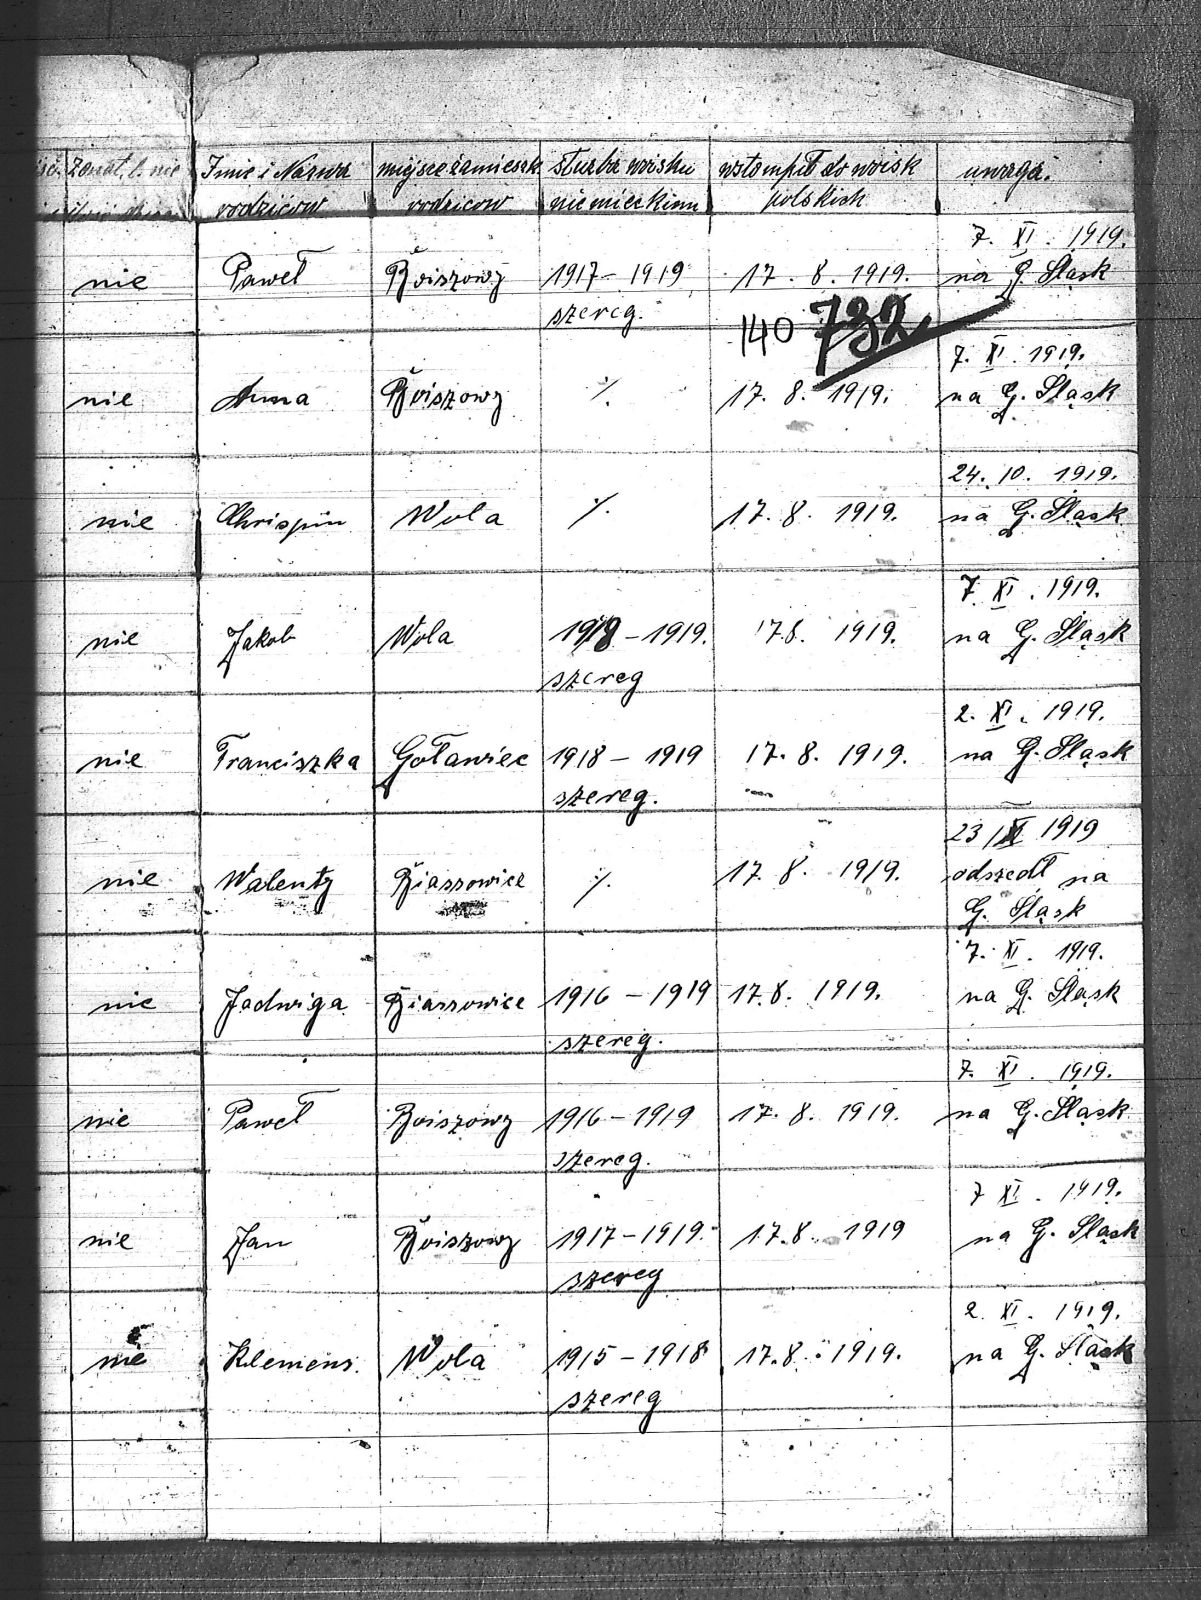 żonat. l. nie Imie i Nazwa mijsce zamieszk. służba woisku wstompił do woisk uwaga.
rodzicow rodzicow niemieckimu polskich
7. XI. 1919.
nie Paweł Boiszowy 1917 – 1919 17. 8. 1919. na G. Sląsk
szereg.
140 732
7. XI. 1919.
nie Anna Boiszowy ./. 17. 8. 1919. na G. Sląsk
24. 10. 1919.
nie Chrispin Wola ./. 17. 8. 1919. na G. Sląsk
7. XI. 1919.
nie Jakob Wola 1918 – 1919. 17.8. 1919. na G. Sląsk
szereg
2. XI. 1919.
nie Franciszka Goławiec 1918 – 1919 17. 8. 1919. na G. Sląsk
szereg.
23/XI 1919
nie Walenty Biassowice ./. 17. 8. 1919. odszedł na
G. Sląsk
7. XI. 1919.
nie Jadwiga Biassowice 1916 – 1919 17.8. 1919. na G. Sląsk
szereg.
7. XI. 1919.
nie Paweł Boiszowy 1916 – 1919 17. 8. 1919. na G. Sląsk
szereg.
7 XI. 1919.
nie Jan Boiszowy 1917 – 1919. 17.8 1919 na G. Sląsk
szereg
2. XI. 1919.
nie Klemens. Wola 1915 – 1918 17.8. 1919. na G. Sląsk
szereg